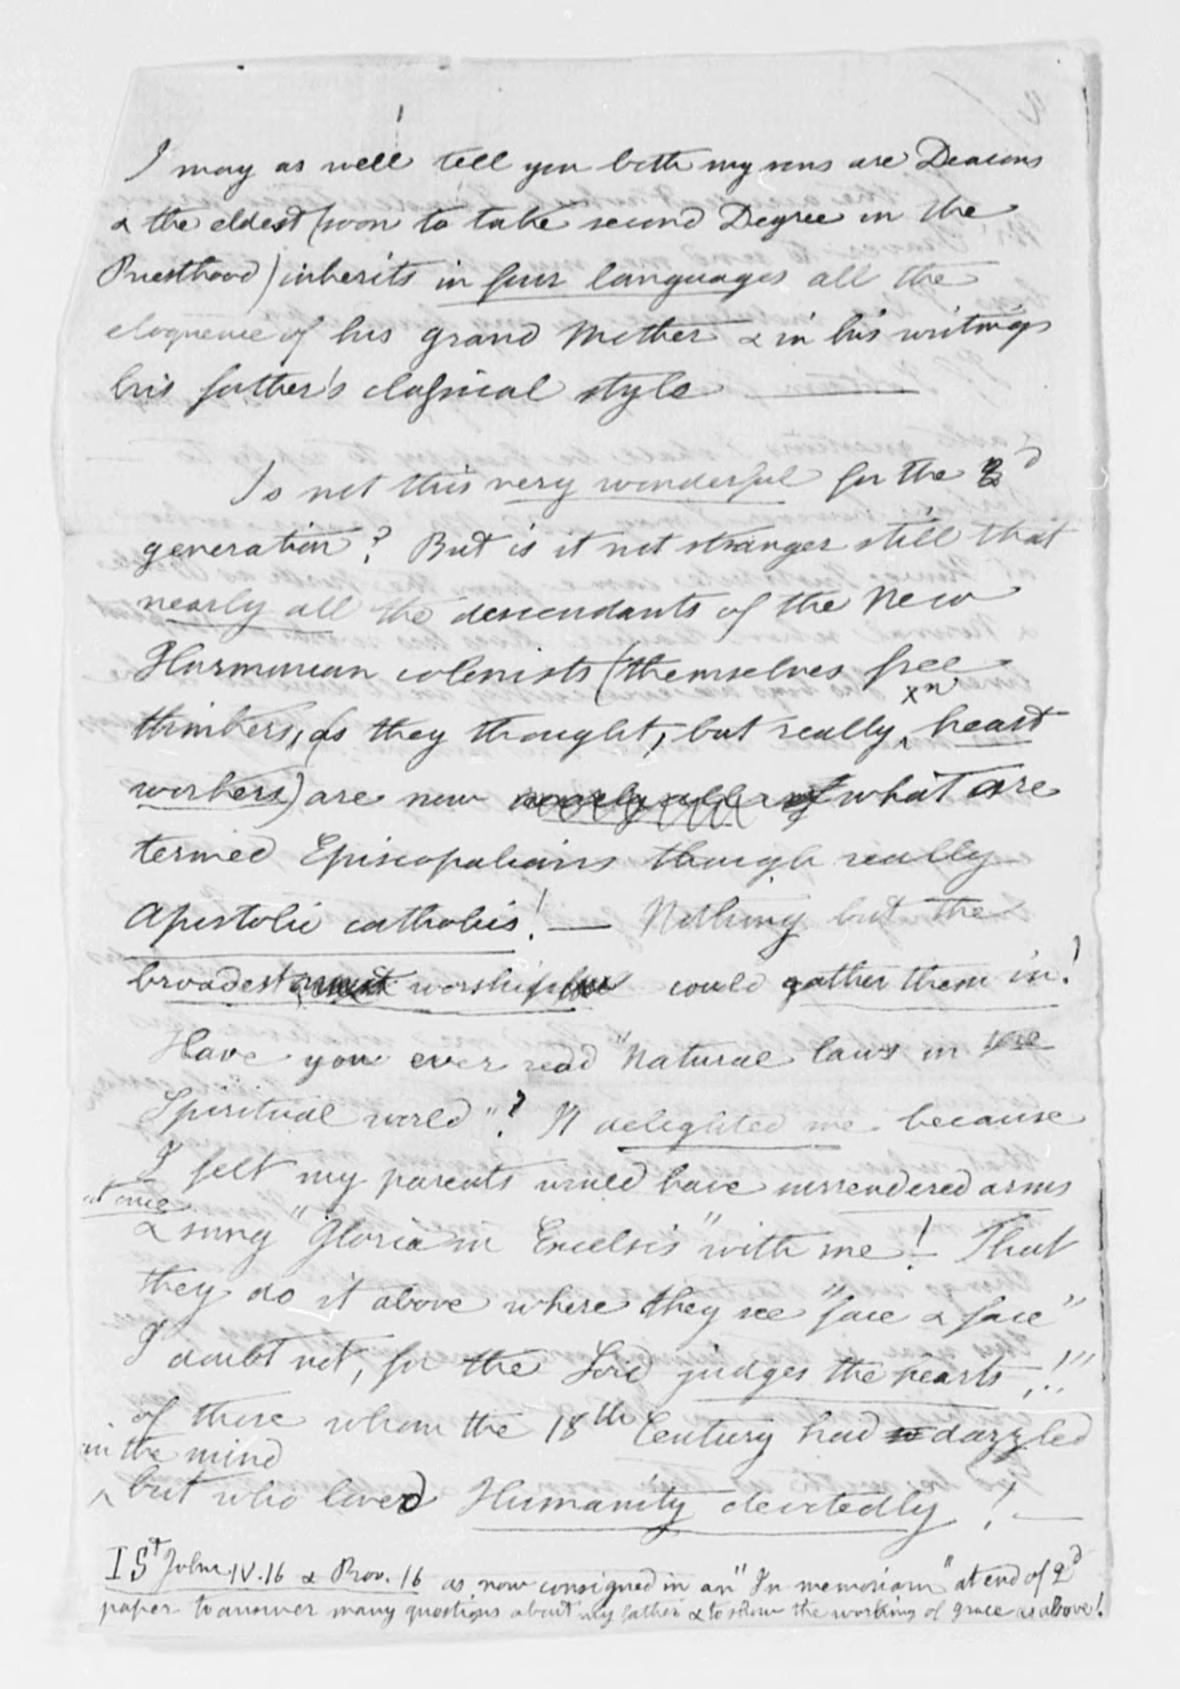 I may as well tell you both my sons are Deacons
& the eldest (soon to take second Degree in the
Priesthood) inherits in four languages all the
eloquence of his grand Mother & in his writings
his father's classical style
Is not this very wonderful for the 3d
generation? But is it not stranger still that
nearly all the descendants of the New
Harmonian colonists (themselves free
thinkers, as they thought, but really heart
xn
workers) are now nearly all of what are
termed Episcopalians though really
Apostolic catholics! — Nothing but the
broadest worship could gather them in!
Have you ever read "Natural laws in the
Spiritual world"? It delighted me because
I felt my parents would have surrendered arms
at once
& sung "Gloria in Excelsis" with me! That
they do it above where they see "face & face"
I doubt not, for the Lord judges the hearts,!!!
of those whom the 18th Century had dazzled
in the mind
but who loved Humanity devotedly! —
I St John IV.16 & Prov. 16 as now consigned in an "In memoriam" at end of 2d
paper to answer many questions about my father & to show the working of grace as above!